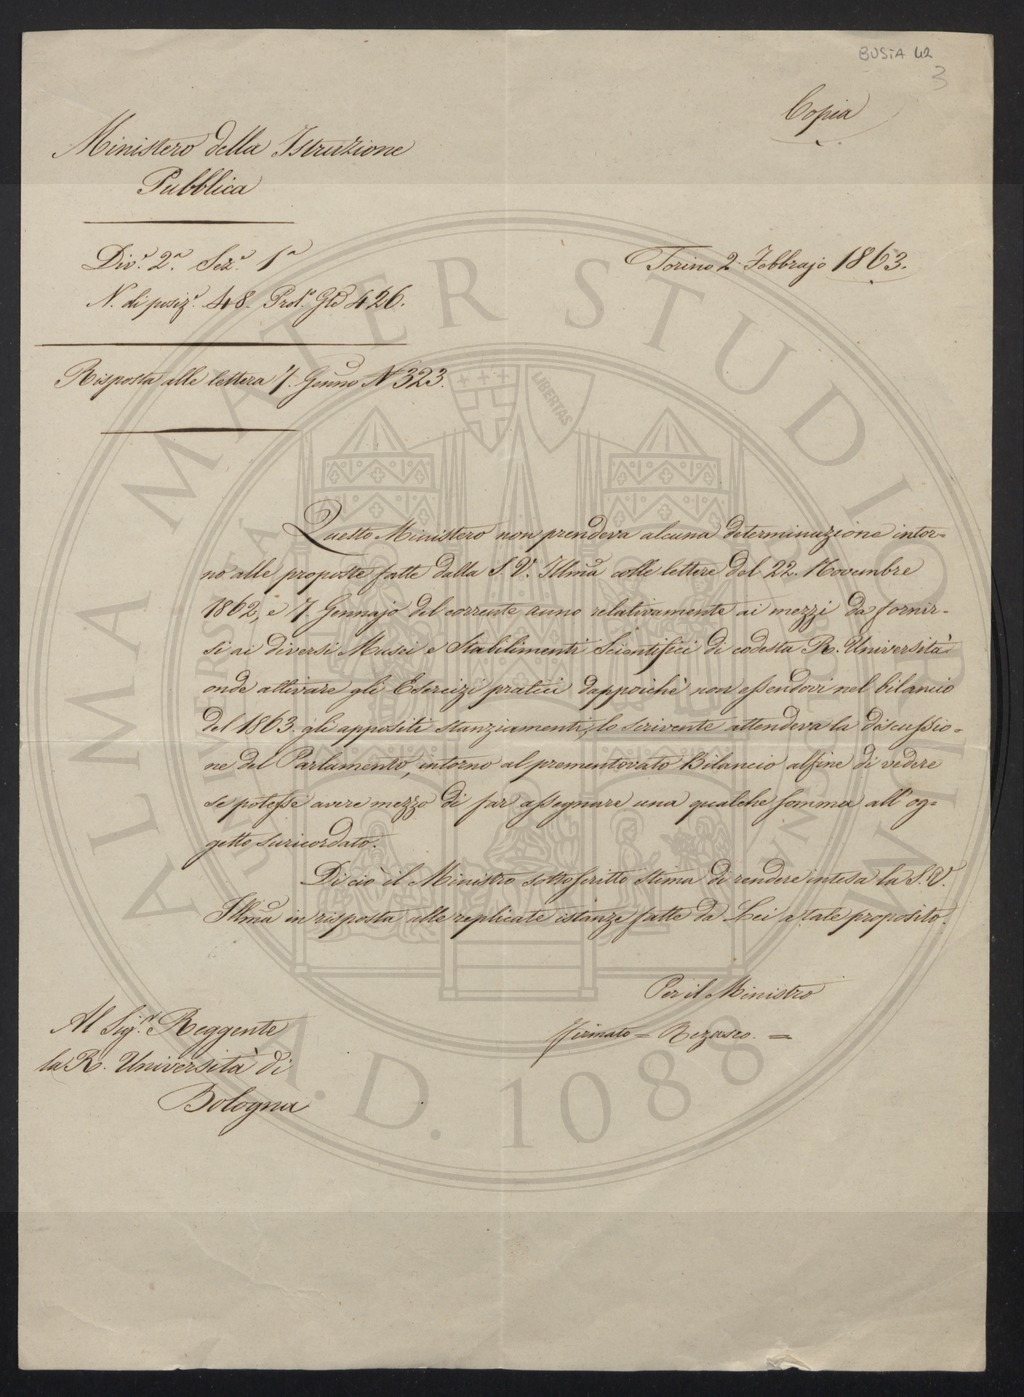 BUSTA 42
3
Copia
Ministero della Istruzione
Pubblica
Div.e 2.a Sez.e 1a
N. di posiz.e 48. Prot. Gle 426.
Torino 2 Febbrajo 1863.
Risposta alla lettera 7. Genno N 323.
Questo Ministero non prendeva alcuna determinazione intor=
no alle proposte fatte dalla S. V. Illma colle lettere del 22. Novembre
1862, e 7 Gennajo del corrente anno relativamente ai mezzi da fornir=
si ai diversi Musei e Stabilimenti Scientifici di codesta R. Università
onde attivare gli Esercizi pratici dappoichè non essendovi nel bilancio
del 1863. gli appositi stanziamenti, lo scrivente attendeva la discussio=
ne del Parlamento, intorno al prementovato Bilancio affine di vedere
se potesse avere mezzo di far assegnare una qualche somma all'og=
getto suricordato.
Di ciò il Ministro sottoscritto stima di rendere intesa la S. V.
Illma in risposta alle replicate istanze fatte da Lei a tale proposito.
Per il Ministro
firmato = Rezasco. =
Al Sig.r Reggente
la R. Università di
Bologna
ALMA MATER STUDIORUM
A.D. 1088
LIBERTAS